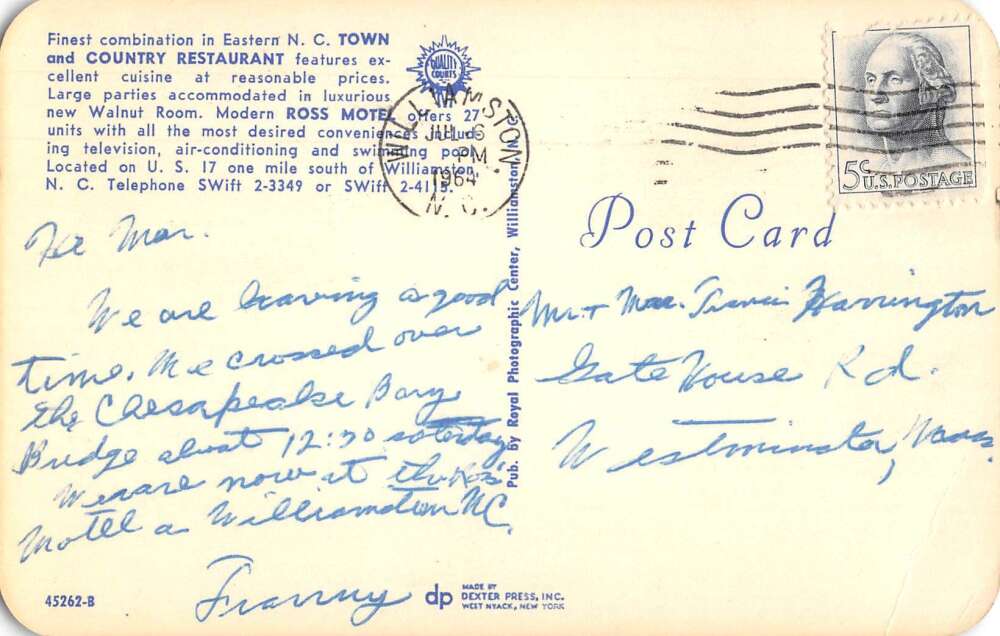 Finest combination in Eastern N. C. TOWN
and COUNTRY RESTAURANT features ex-
cellent cuisine at reasonable prices.
Large parties accommodated in luxurious
new Walnut Room. Modern ROSS MOTEL offers 27
units with all the most desired conveniences includ-
ing television, air-conditioning and swimming pool.
Located on U. S. 17 one mile south of Williamston,
N. C. Telephone SWift 2-3349 or SWift 2-4115.
QUALITY
COURTS
WILLIAMSTON,
JUL 6
PM
1964
N. C.
5c
U.S. POSTAGE
Post Card
Mar.
We are having a good
time. We crossed over
the Chesapeake Bay
Bridge about 12:30 saterday
We are now at the Ros
Motell a Williamston NC.
Franny
Mr. + Mrs. Harrington
Gate House Rd.
Westminster, Mass.
Pub. by Royal Photographic Center, Williamston, N.
45262-B
dp
MADE BY
DEXTER PRESS, INC.
WEST NYACK, NEW YORK